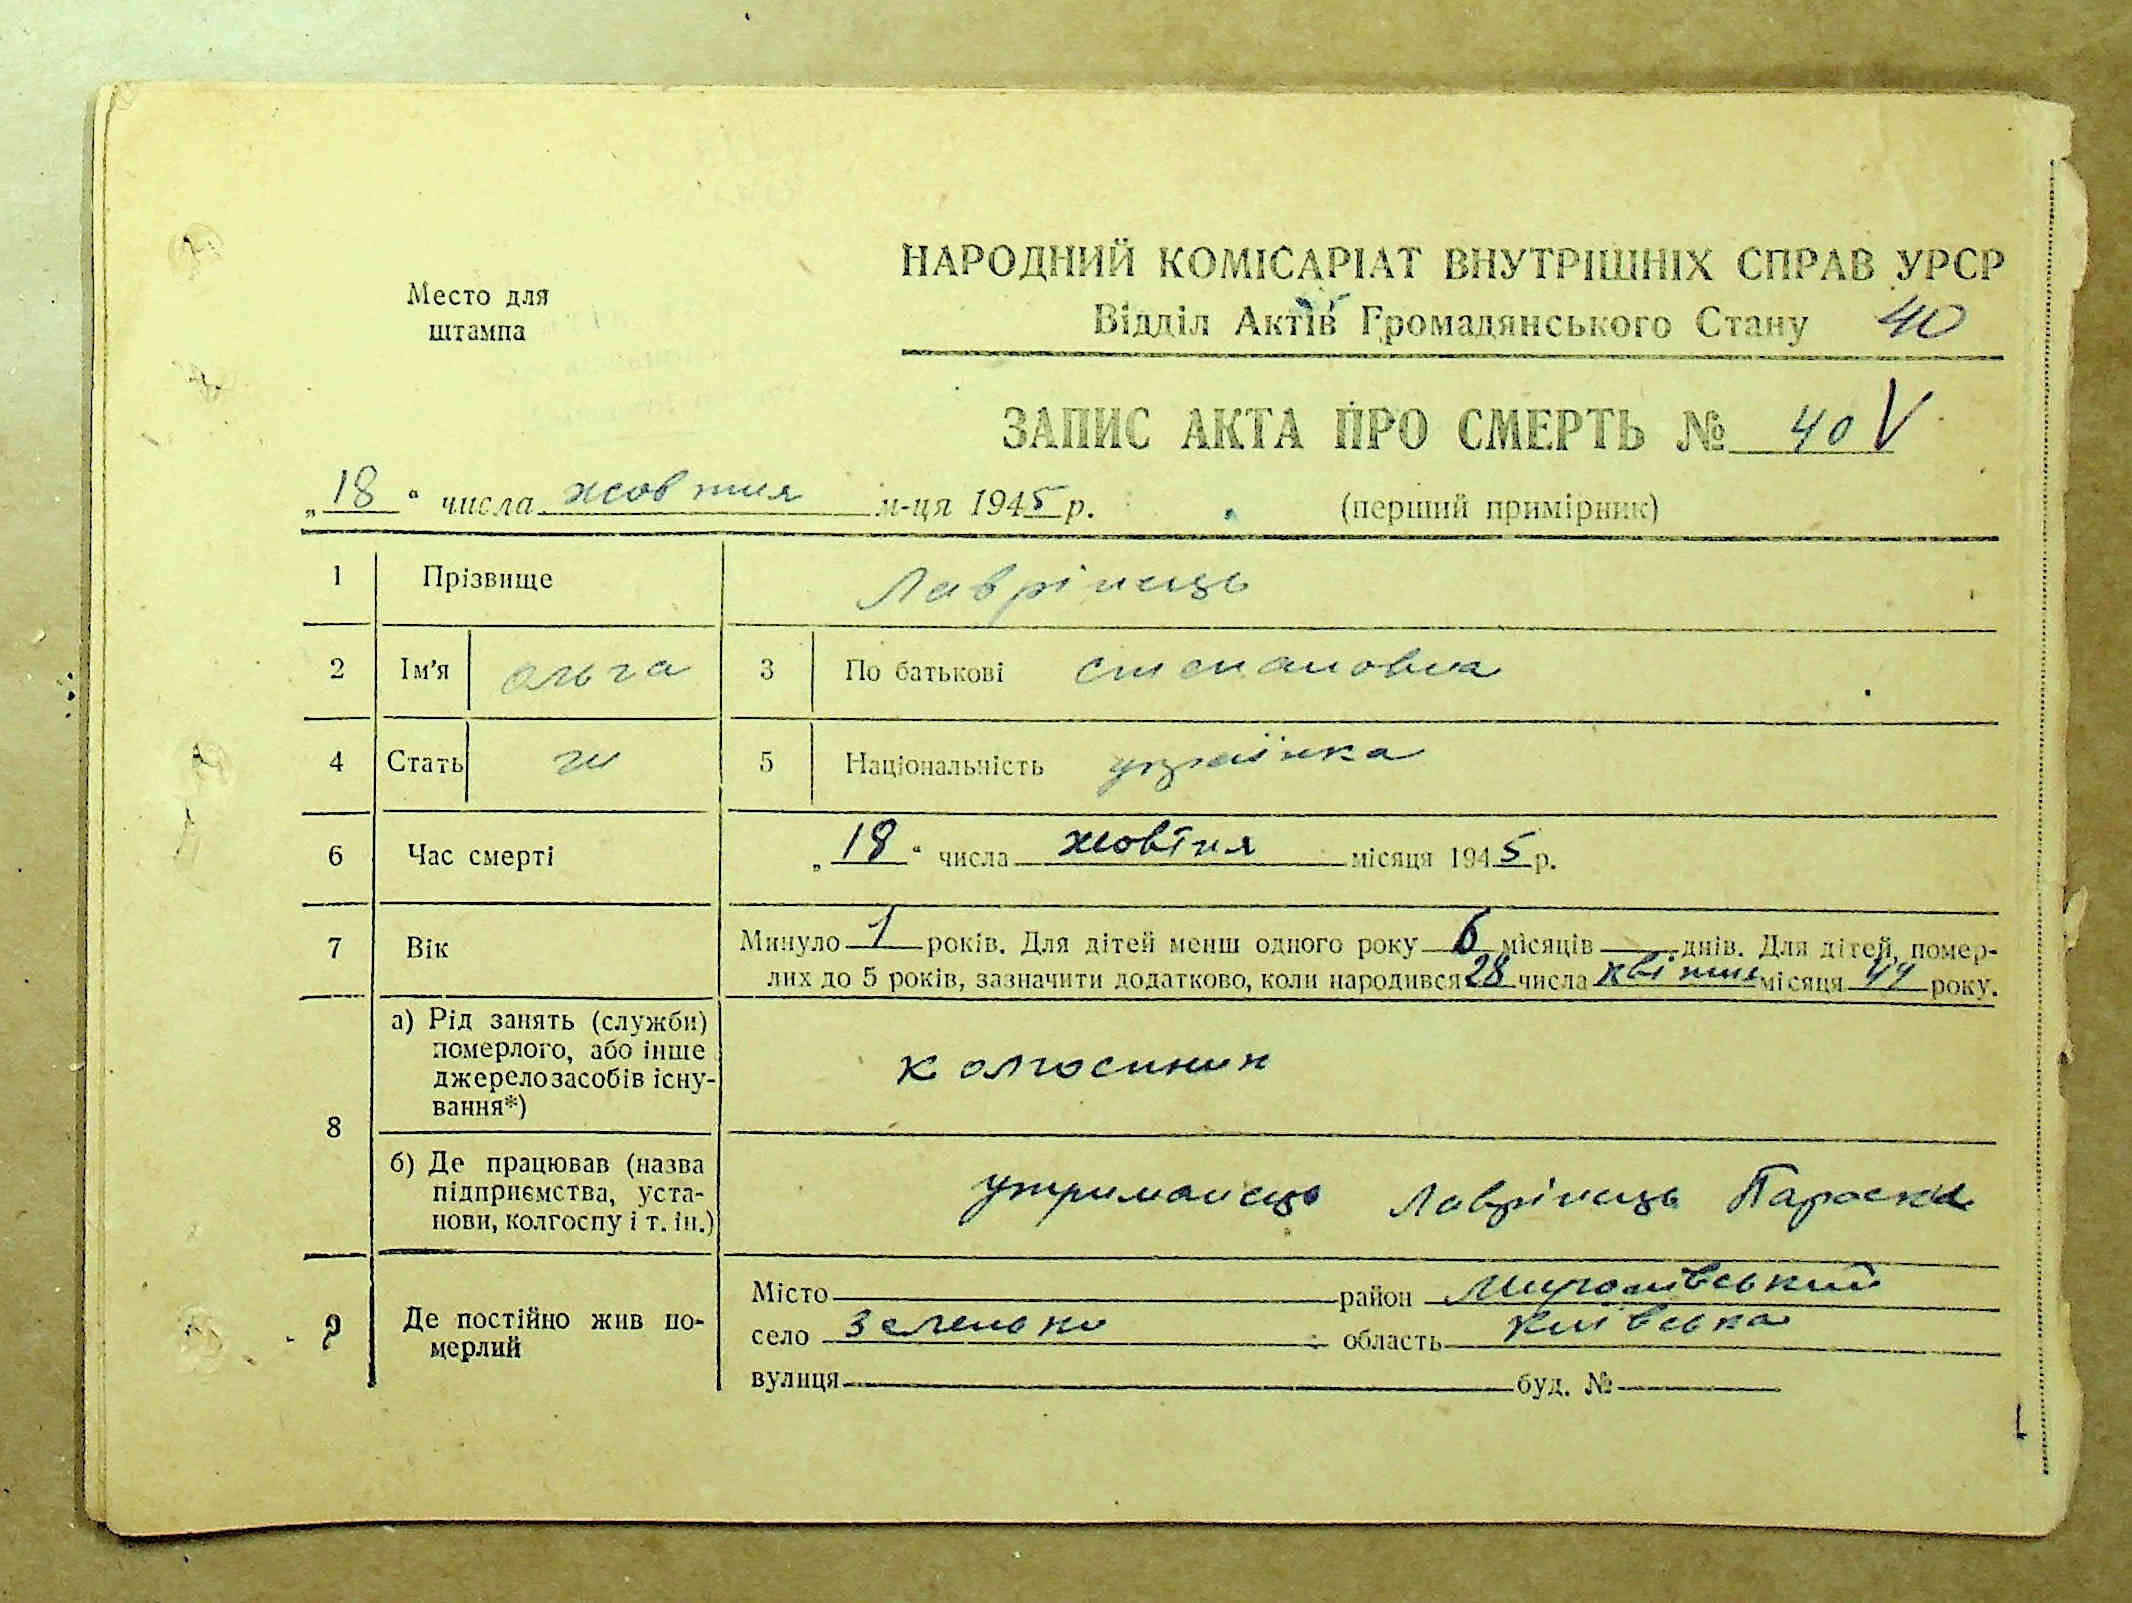 Место для
штампа
НАРОДНИЙ КОМІСАРІАТ ВНУТРІШНІХ СПРАВ УРСР
Відділ Актів Громадянського Стану 40
ЗАПИС АКТА ПРО СМЕРТЬ № 40 V
„18“ числа жовтня м-ця 1945 р. (перший примірник)
1 Прізвище Лаврінець
2 Ім'я Ольга 3 По батькові Степановна
4 Стать ж 5 Національність українка
6 Час смерті „18“ числа жовтня місяця 1945 р.
7 Вік Минуло 1 років. Для дітей менш одного року 6 місяців — днів. Для дітей, помер-
лих до 5 років, зазначити додатково, коли народився 28 числа квітня місяця 44 року.
8 а) Рід занять (служби)
померлого, або інше
джерело засобів існу-
вання*)
колгоспник
б) Де працював (назва
підприємства, уста-
нови, колгоспу і т. ін.)
утриманець Лаврінець Параски
9 Де постійно жив по-
мерлий
Місто район Миронівський
село Зеленьки область Київська
вулиця буд. №